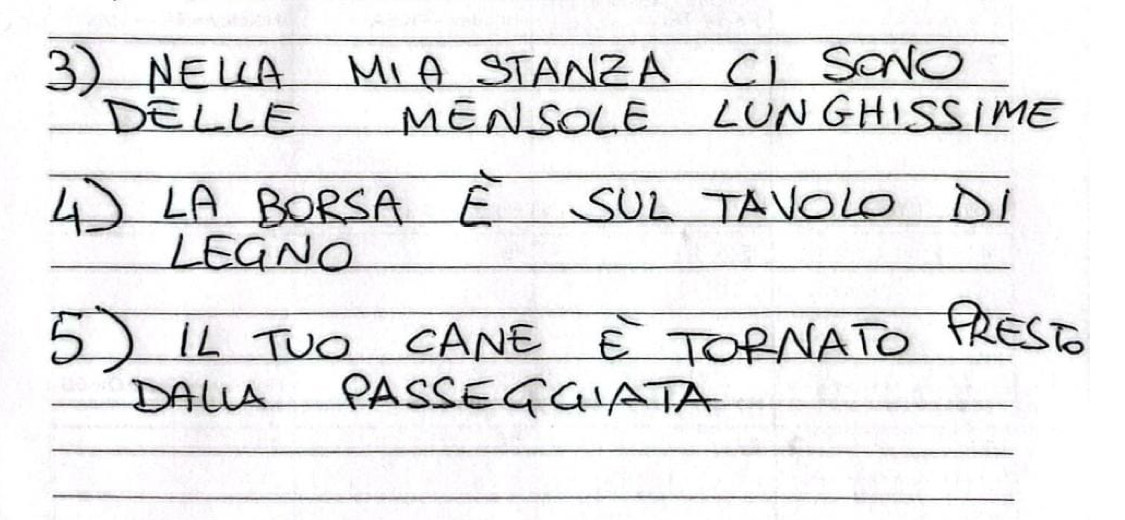 3) NELLA MIA STANZA CI SONO
DELLE MENSOLE LUNGHISSIME
4) LA BORSA È SUL TAVOLO DI
LEGNO
5) IL TUO CANE È TORNATO PRESTO
DALLA PASSEGGIATA